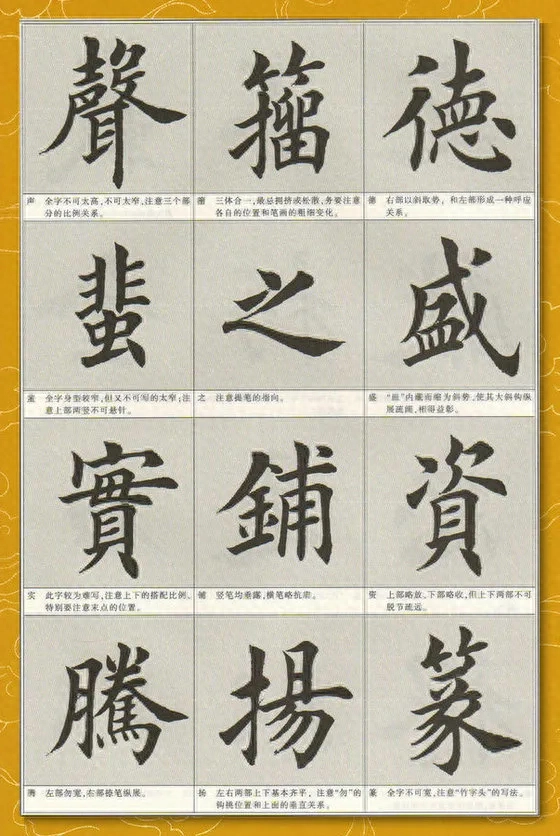 德
德 右部以斜取势,和左部形成一种呼应
关系。
盛
盛 “皿”内藏而缩为斜势,使其大斜钩纵
展疏阔,相得益彰。
資
资 上部略放,下部略收,但上下两部不可
脱节疏远。
篆
篆 全字不可宽,注意“竹字头”的写法。
籀
籀 三体合一,最忌拥挤或松散,务要注意
各自的位置和笔画的粗细变化。
之
之 注意提笔的向。
鋪
铺 竖笔均垂露,横笔略抗。
揚
扬 左右两部上下基本齐平,注意“勿”的
钩挑位置和上面的垂直关系。
聲
声 全字不可太高,不可太窄,注意三个部
分的比例关系。
蜚
蜚 全字身型较窄,但又不可写的太窄;注
意上部两竖不可悬针。
實
实 此字较为难写,注意上下的搭配比例、
特别要注意末点的位置。
騰
腾 左部勿宽,右部捺笔纵展。